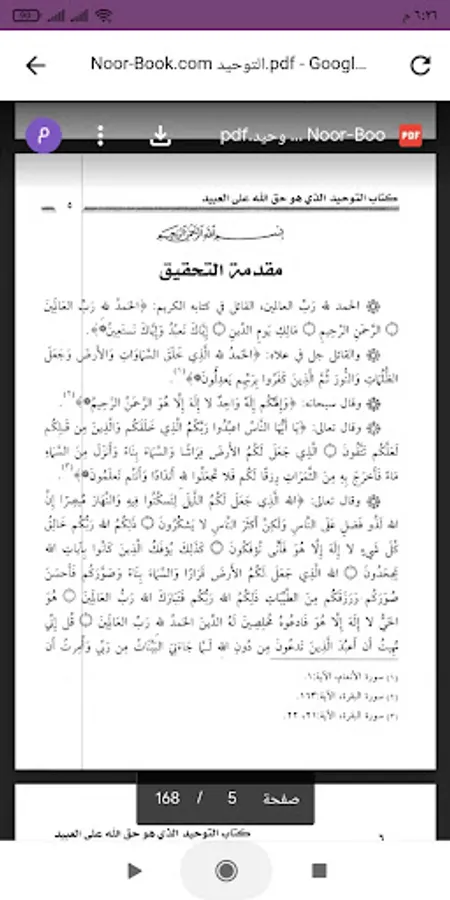 ٦:٢٦ م
Noor-Book.com التوحيد.pdf - Googl...
م
Noor-Boo ... وحيد.pdf
PDF
كتاب التوحيد الذي هو حق الله على العبيد ٥
بسم الله الرحمن الرحيم
مقدمة التحقيق
الحمد لله رَبِّ العالمين، القائل في كتابه الكريم: ﴿الحَمدُ لله رَبِّ العَالَمِينَ
الرَّحْمَنِ الرَّحِيمِ مَالِكِ يَومِ الدِّينِ إِيَّاكَ نَعبُدُ وَإِيَّاكَ نَستَعِينُ﴾.
والقائل جل في علاه: ﴿الحَمدُ لله الَّذِي خَلَقَ السَّمَاوَاتِ وَالأَرضَ وَجَعَلَ
الظُّلُمَاتِ وَالنُّورَ ثُمَّ الَّذِينَ كَفَرُوا بِرَبِّهِم يَعدِلُونَ﴾(١).
وقال سبحانه: ﴿وَإِلَهُكُم إِلَهٌ وَاحِدٌ لا إِلَهَ إِلَّا هُوَ الرَّحْمَنُ الرَّحِيمُ﴾(٢).
وقال تعالى: ﴿يَا أَيُّهَا النَّاسُ اعبُدُوا رَبَّكُمُ الَّذِي خَلَقَكُم وَالَّذِينَ مِن قَبلِكُم
لَعَلَّكُم تَتَّقُونَ الَّذِي جَعَلَ لَكُمُ الأَرضَ فِرَاشًا وَالسَّمَاءَ بِنَاءً وَأَنزَلَ مِنَ السَّمَاءِ
مَاءً فَأَخرَجَ بِهِ مِنَ الثَّمَرَاتِ رِزقًا لَكُم فَلا تَجعَلُوا لله أَندَادًا وَأَنتُم تَعلَمُونَ﴾(٣).
وقال تعالى: ﴿الله الَّذِي جَعَلَ لَكُمُ اللَّيلَ لِتَسكُنُوا فِيهِ وَالنَّهَارَ مُبصِرًا إِنَّ
الله لَذُو فَضلٍ عَلَى النَّاسِ وَلَكِنَّ أَكثَرَ النَّاسِ لا يَشكُرُونَ ذَلِكُمُ الله رَبُّكُم خَالِقُ
كُلِّ شَيءٍ لا إِلَهَ إِلَّا هُوَ فَأَنَّى تُؤفَكُونَ كَذَلِكَ يُؤفَكُ الَّذِينَ كَانُوا بِآيَاتِ الله
يَجحَدُونَ الله الَّذِي جَعَلَ لَكُمُ الأَرضَ قَرَارًا وَالسَّمَاءَ بِنَاءً وَصَوَّرَكُم فَأَحسَنَ
صُوَرَكُم وَرَزَقَكُم مِنَ الطَّيِّبَاتِ ذَلِكُمُ الله رَبُّكُم فَتَبَارَكَ الله رَبُّ العَالَمِينَ هُوَ
الحَيُّ لا إِلَهَ إِلَّا هُوَ فَادعُوهُ مُخلِصِينَ لَهُ الدِّينَ الحَمدُ لله رَبِّ العَالَمِينَ قُل إِنِّي
نُهِيتُ أَن أَعبُدَ الَّذِينَ تَدعُونَ مِن دُونِ الله لَـمَّا جَاءَنِيَ البَيِّنَاتُ مِن رَبِّي وَأُمِرتُ أَن
(١) سورة الأنعام، الآية:١.
(٢) سورة البقرة، الآية:١٦٣.
(٣) سورة البقرة، الآية:٢١، ٢٢.
صفحة 5 / 168
٦ كتاب التوحيد الذي هو حق الله على العبيد